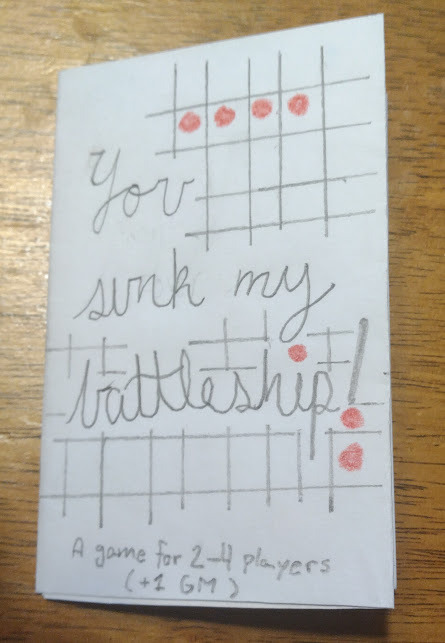 You
sunk my
battleship!
A game for 2-4 players
(+1 GM)